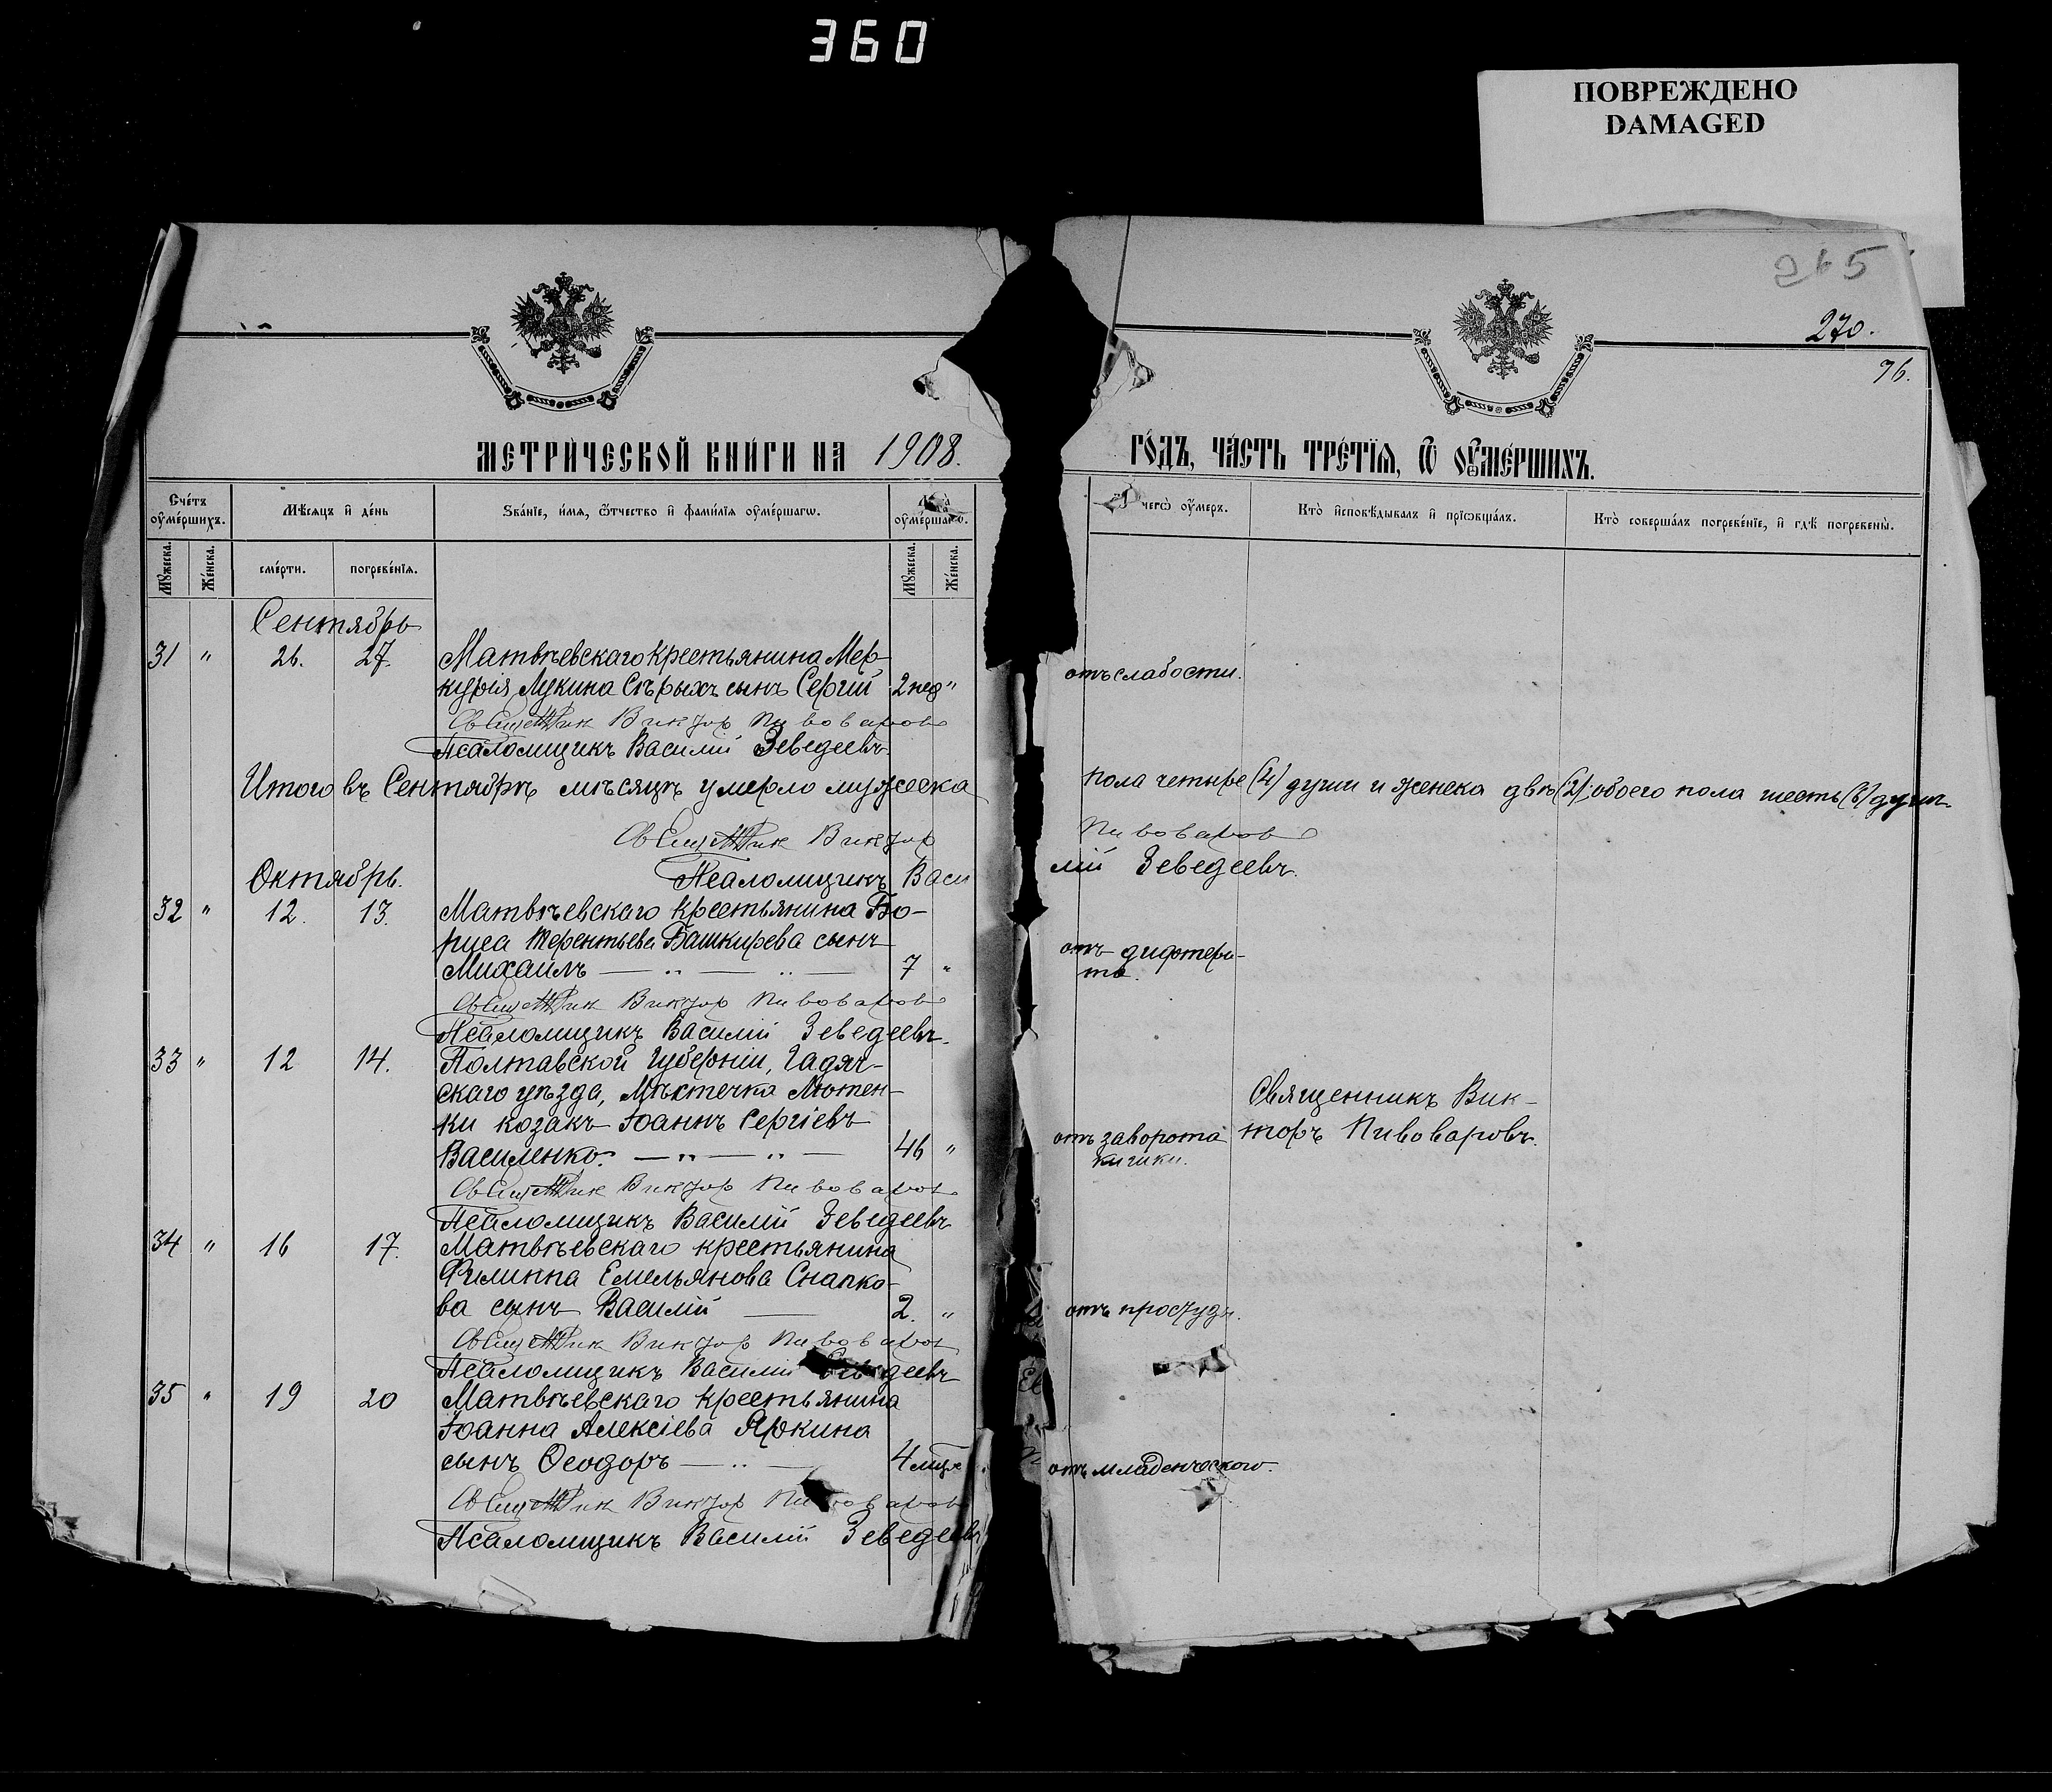 360
ПОВРЕЖДЕНО
DAMAGED
265
270.
76.
МЕТРИ́ЧЕСКОЙ КНИ́ГИ НА 1908. ГО́ДЪ, ЧА́СТЬ ТРЕ́ТІЯ, Ѿ ОУМЕ́РШИХЪ.
Сче́тъ оуме́ршихъ.
Мѣ́сяцъ и де́нь
Зва́ніе, и́мя, ѻ́тчество и фами́лія оуме́ршагѡ.
оуме́ршагѡ.
чегѡ̀ оу́меръ.
Кто̀ и҆сповѣ́дывалъ и прїѡбща́лъ.
Кто̀ соверша́лъ погребе́ніе, и гдѣ̀ погребены̀.
Мꙋ́жеска.
Же́нска.
сме́рти.
погребе́нія.
Мꙋ́жеска.
Же́нска.
Сентябрь
31 " 26. 27. Матвѣевскаго крестьянина Мер-
курія Лукина Сѣрыхъ сынъ Сергій 2 нед " отъ слабости.
Священник Виктор Пивоваров
Псаломщикъ Василій Зеведеевъ
Итого въ Сентябрѣ мѣсяцѣ умерло мужеска пола четыре (4) души и женска двѣ (2) обоего пола шесть (6) душъ
Священник Виктор Пивоваров
Октябрь. Псаломщикъ Василій Зеведеевъ.
32 " 12. 13. Матвѣевскаго крестьянина Бо-
риса Терентьева Башкирева сынъ отъ дифтери-
Михаилъ — " — " — 7 " та.
Священник Виктор Пивоваров
Псаломщикъ Василій Зеведеевъ.
33 " 12 14. Полтавской Губерніи, Гадяч-
скаго уѣзда, Мѣстечка Лютен- Священникъ Вик-
ки козакъ Іоаннъ Сергіевъ
Василенко. — " — " — 46 " отъ заворота торъ Пивоваровъ.
кишки.
Священник Виктор Пивоваров
Псаломщикъ Василій Зеведеевъ
34 " 16 17. Матвѣевскаго крестьянина
Филиппа Емельянова Снапко-
ва сынъ Василій — 2. " отъ простуды.
Священник Виктор Пивоваров
Псаломщикъ Василій Зеведеевъ
35 " 19 20 Матвѣевскаго крестьянина
Іоанна Алексіева Яркина
сынъ Ѳеодоръ — " — 4 мца отъ младенческого.
Священник Виктор Пивоваров
Псаломщикъ Василій Зеведеевъ